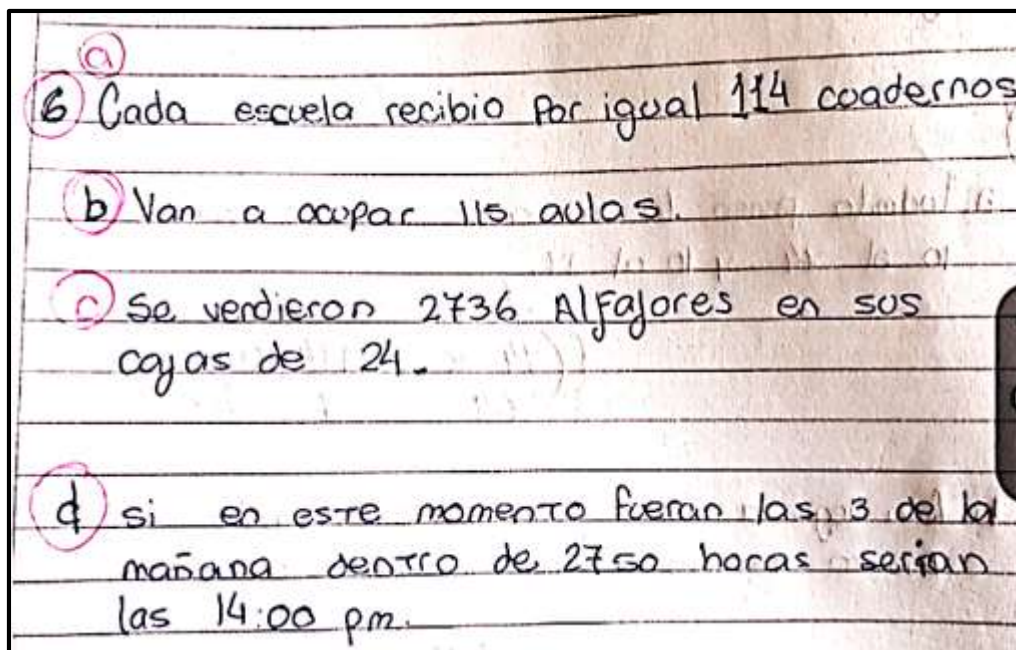 a
6 Cada escuela recibio Por igual 114 coadernos
b Van a ocupar 115 aulas.
c Se verdieron 2736 Alfajores en sus
cajas de 24.
d si en este momento fueran las 3 de la
mañana dentro de 2750 horas serian
las 14:00 pm.